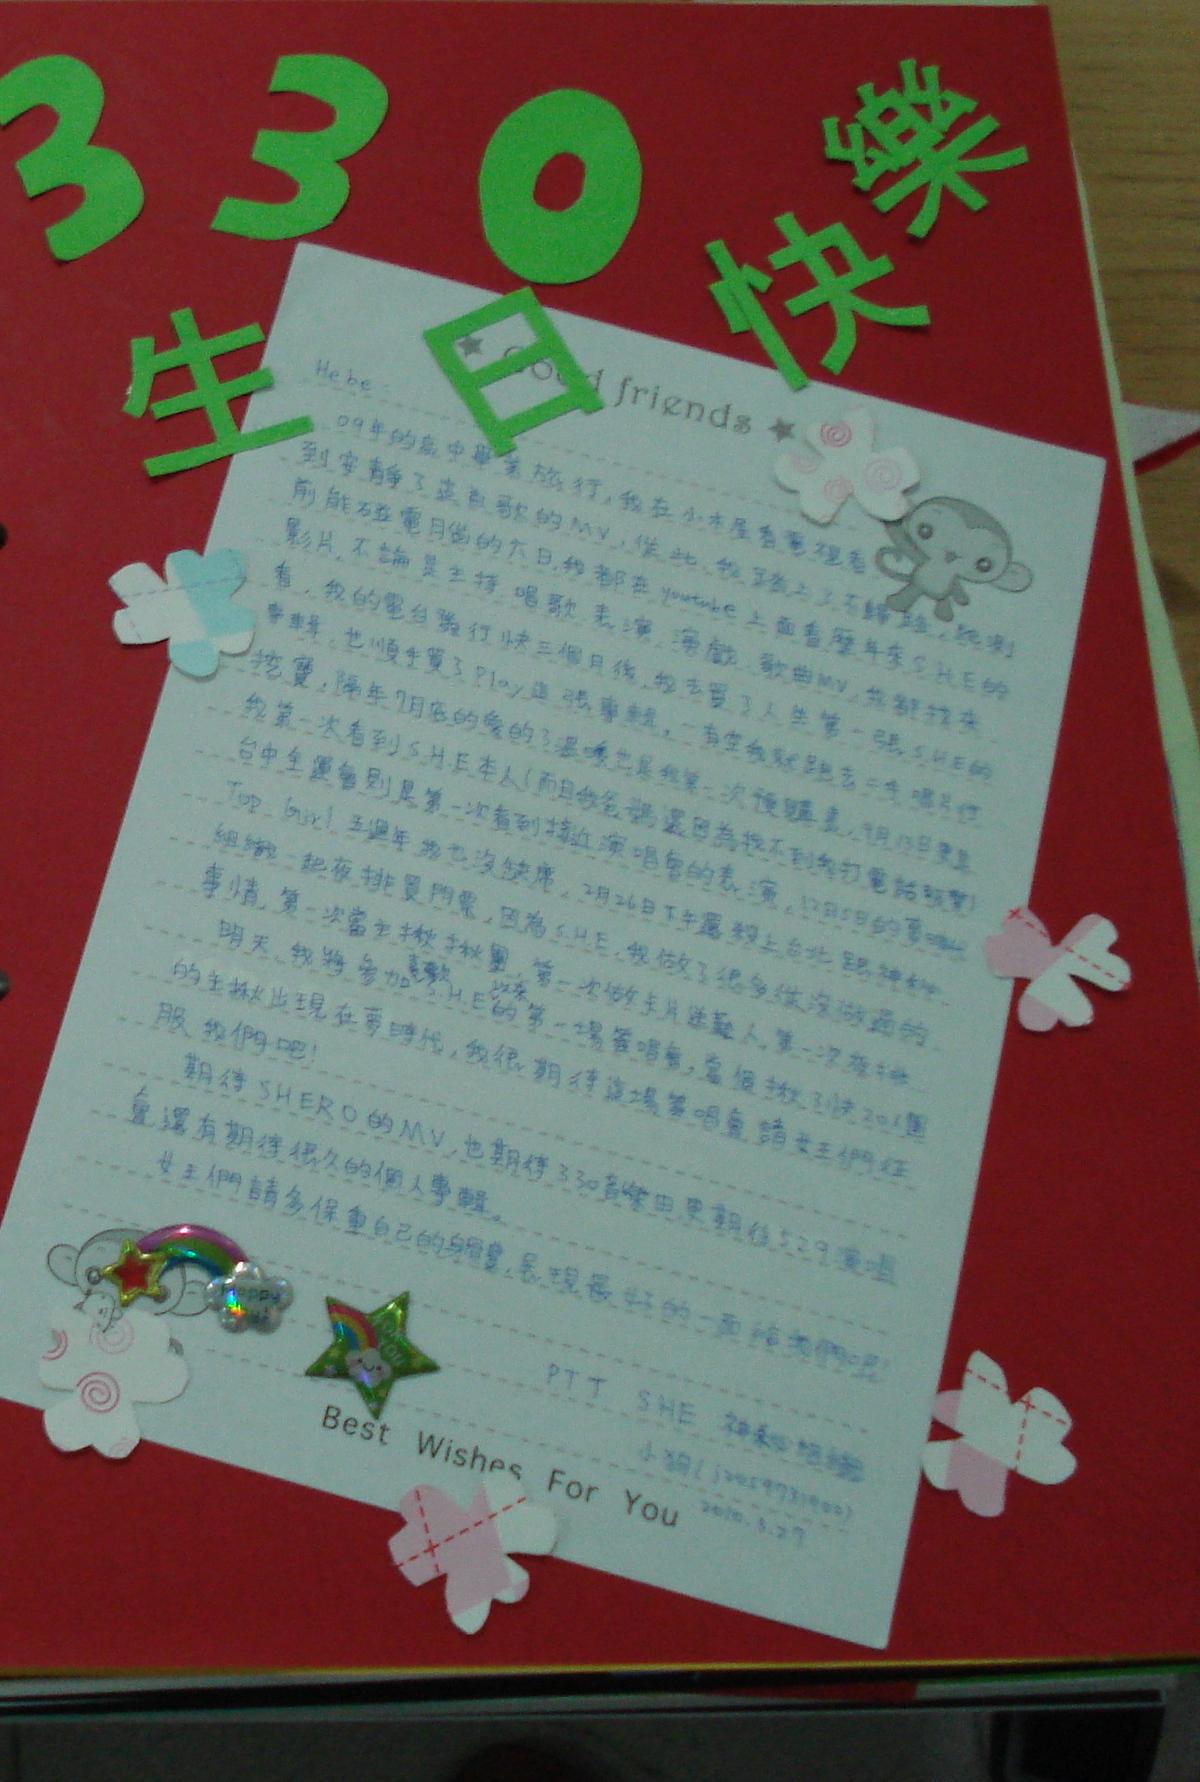 330
生日快樂
Good friends
Hebe:
09年的高中畢業旅行,我在小木屋看電視看
到安靜了這首歌的MV,從此,我踏上了不歸路,
前能碰電腦的六日,我都在youtube上面看歷年來S.H.E的
影片,不論是主持、唱歌、表演、演戲、歌曲MV,我都找來
看。我的電台發行快三個月後,我去買了人生第一張S.H.E的
專輯,也順手買了Play這張專輯。一有空我就跑去二手唱片行
挖寶,隔年7月底的愛的3溫暖也是我第一次預購,9月13日更是
我第一次看到S.H.E本人(而且我爸媽還因為找不到我打電話
台中全運會則是第一次看到接近演唱會的表演,12月5日的
Top Girl 五週年我也沒缺席。2月26日下午還殺上台北跟神秘
組織一起夜排買門票,因為S.H.E,我做了很多從沒做過的
事情,第一次當主揪揪團,第一次做卡片送藝人,第一次夜排
明天,我將參加喜歡S.H.E以來的第一場簽唱會,當個揪了快20人團
的主揪出現在夢時代,我很期待這場簽唱會,請女王們征
服我們吧!
期待SHERO的MV,也期待330音樂田,更期待529演唱
會還有期待很久的個人專輯。
女王們請多保重自己的身體,展現最好的一面給我們吧!
PTT SHE 神秘組織
2010.3.27
Best Wishes For You